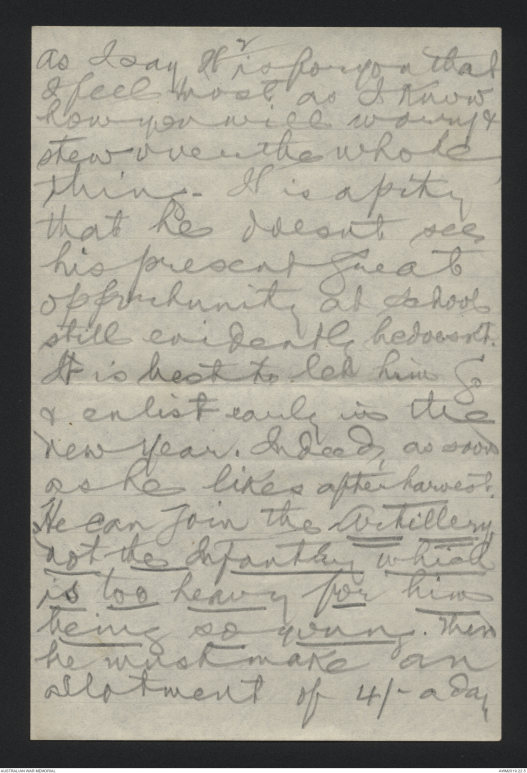 2
as I say it is for you that
I feel most as I know
how you will worry &
stew over the whole
thing - It is a pity
that he doesnt see
his present great
opportunity at school
still evidently he doesnt.
It is best to let him go
& enlist early in the
new year. Indeed, as soon
as he likes after harvest.
He can join the Artillery
not the Infantry which
is too heavy for him
being so young. Then
he must make an
allotment of 4/- a day
AUSTRALIAN WAR MEMORIAL